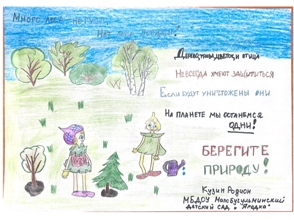 Много леса - не губи,
Деревья, цветок, и птица
Не всегда умеют защититься
Если будут уничтожены они
На планете мы останемся
одни!
БЕРЕГИТЕ
ПРИРОДУ!
Кузин Родион
МБДОУ Новобусульминский
детский сад "Ягодка"